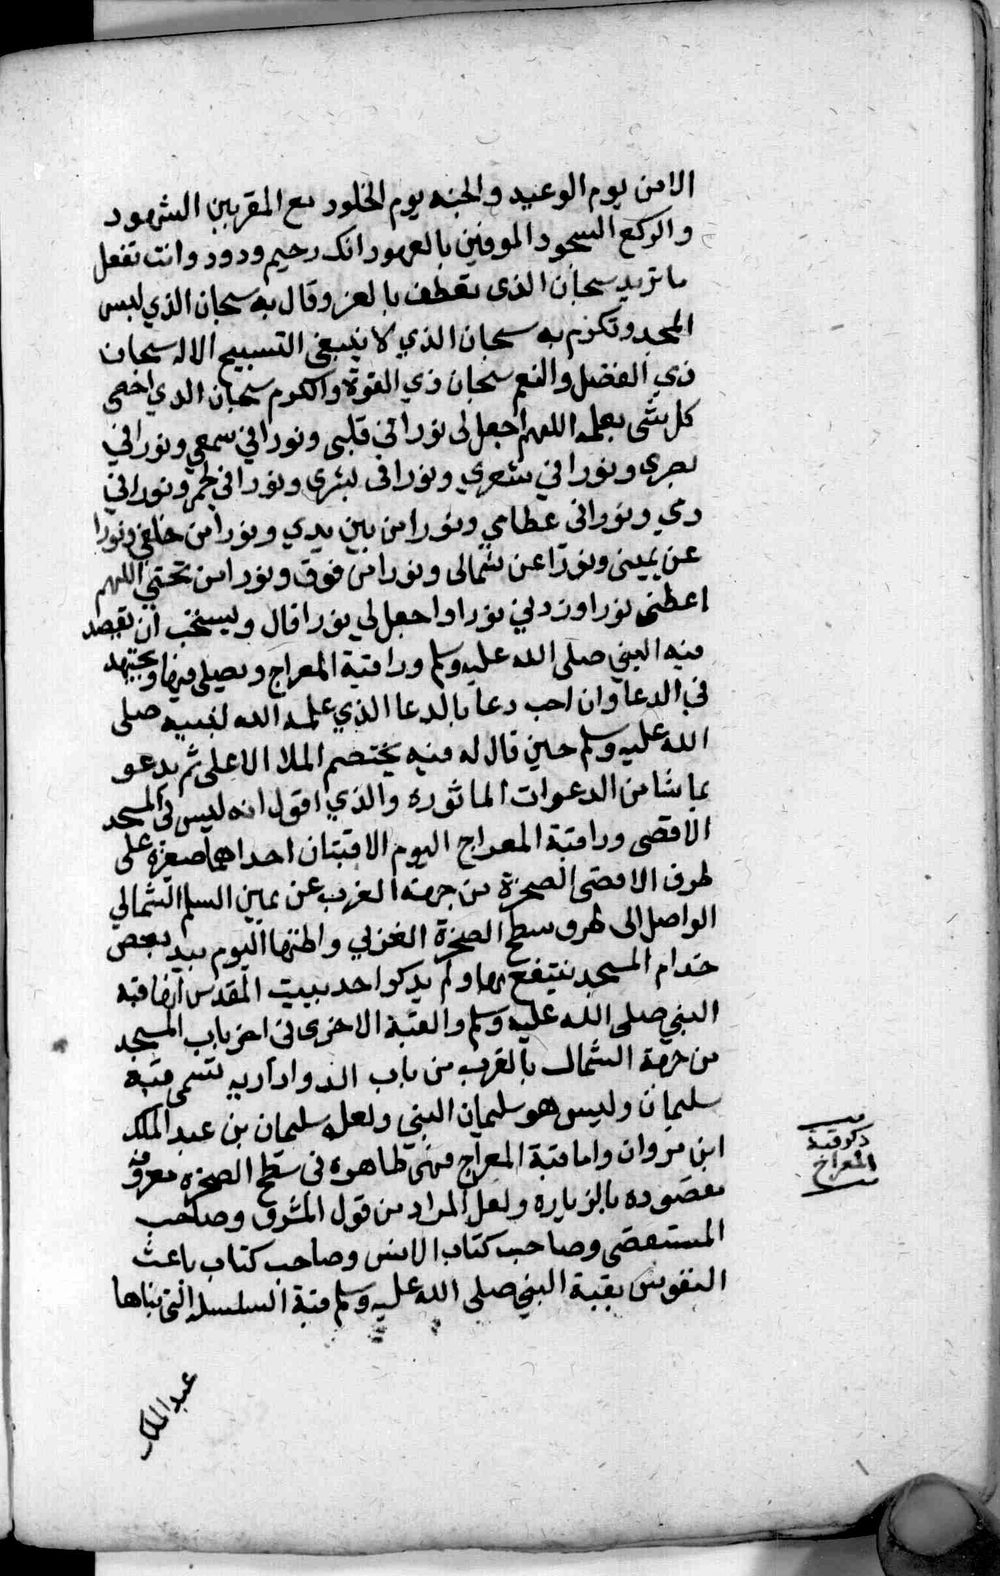 الامن يوم الوعيد والجنه يوم الخلود مع المقربين الشهود
والركع السجود الموفين بالعهود انك رحيم ودود وانت تفعل
ما تريد سبحان الذى تعطف بالعز وقال به سبحان الذي لبس
المجد وتكرم به سبحان الذي لا ينبغي التسبيح الا له سبحان
ذي الفضل والنعم سبحان ذي القوة والكرم سبحان الذي احصى
كل شى بعلمه اللهم اجعل لى نورا في قلبى ونورا في سمعي ونورا في
بصرى ونورا في شعري ونورا فى بشرى ونورا في لحمى ونورا في
دمي ونورا فى عظامي ونورا من بين يدي ونورا من خلفي ونورا
عن يمينى ونورا عن شمالى ونورا من فوقى ونورا من تحتي اللهم
اعطنى نورا وزدني نورا واجعل لي نورا قال ويستحب ان تقصد
قبة النبي صلى الله عليه وسلم ورا قبة المعراج ويصلى فيها ويجتهد
في الدعا وان احب دعا بالدعا الذي علمه الله لنبيه صلى
الله عليه وسلم حين قال له فيم يختصم الملا الاعلى ثم يدعو
بما شا من الدعوات الماثوره والذي اقول انه ليس فى المسجد
الاقصى ورا قبة المعراج اليوم الا قبتان احداهما صغره على
طرف الاقصى الصخرة من جهة الغرب عن يمين السلم الشمالي
الواصل الى طرف سطح الصخرة الغربي واظنها اليوم بيد بعض
خدام المسجد ينتفع بها ولم يذكر احد ببيت المقدس انها قبة
النبي صلى الله عليه وسلم والقبة الاخرى فى اخر باب المسجد
من جهة الشمال بالقرب من باب الدوادارية تسمى قبة
سليمان وليس هو سليمان النبي ولعله سليمان بن عبد الملك
ابن مروان واما قبة المعراج فهى ظاهره فى سطح الصخره معروفة
مقصوده بالزياره ولعل المراد من قول المشرف وصاحب
المستقصى وصاحب كتاب الانس وصاحب كتاب باعث
النفوس بقبة النبي صلى الله عليه وسلم قبة السلسله التى بناها
عبد الملك
ذكر قبة
المعراج